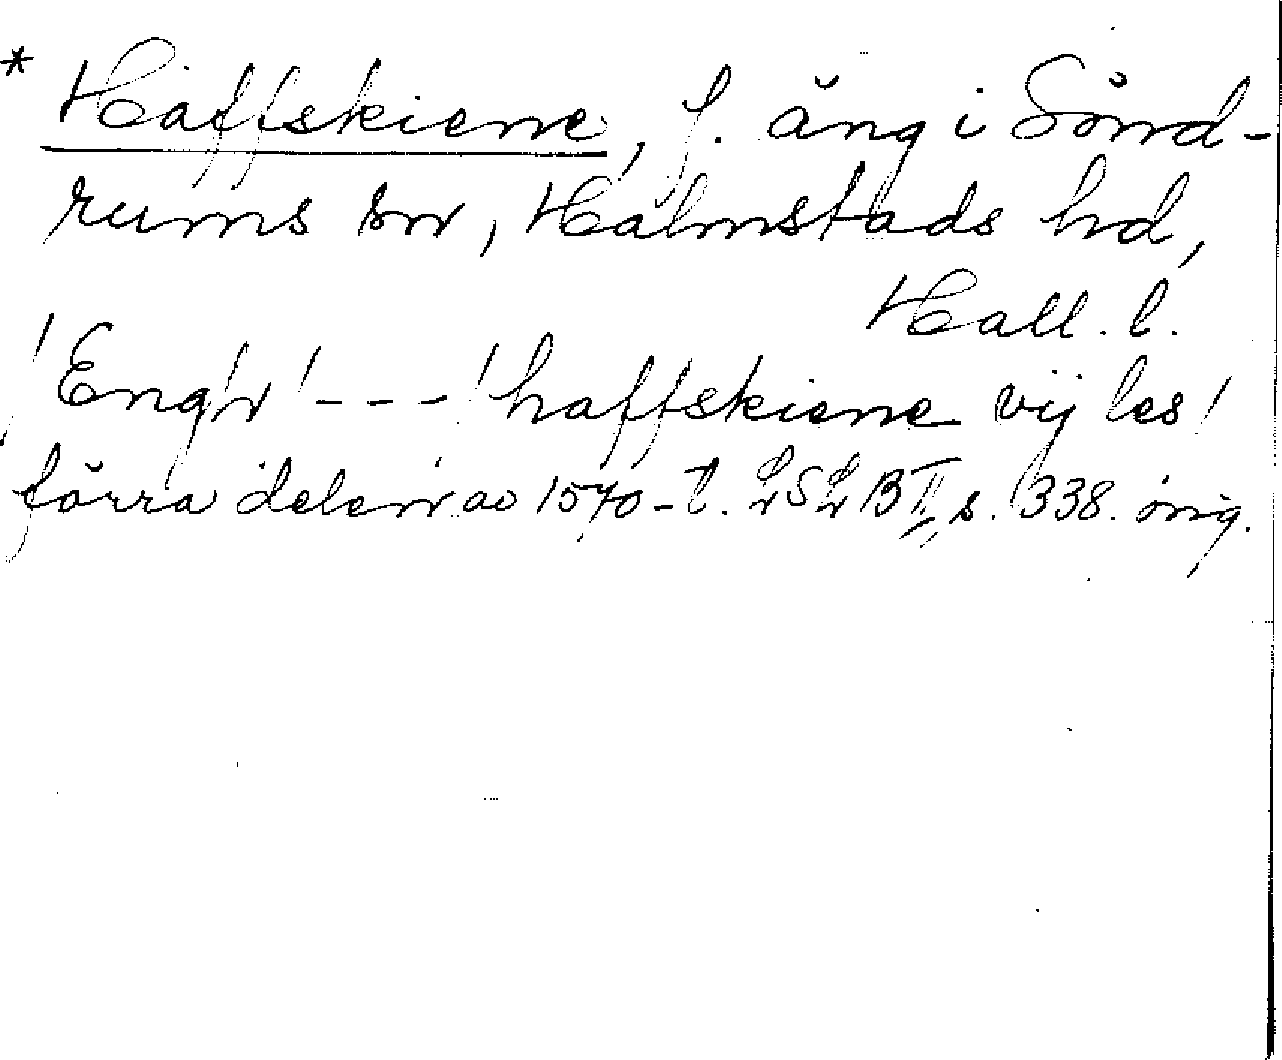 * Haffskiene, f. äng i Sönd-
rums sn, Halmstads hd,
Hall. l.
! Eng'r ! - - - ! haffskiene vij les !
förra delen av 1570-t. LSLB II, s. 338. orig.